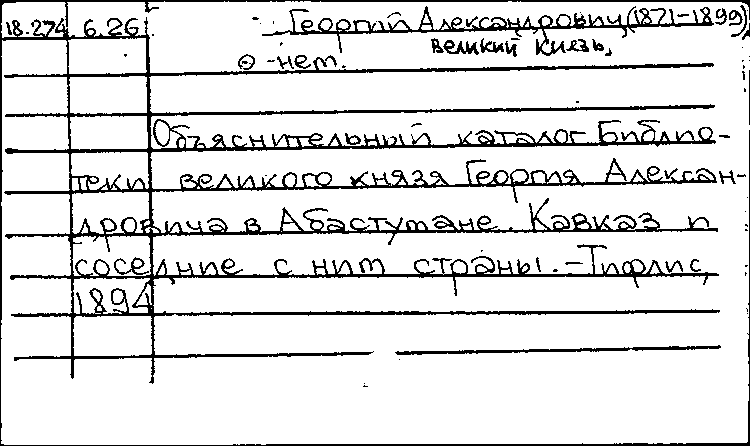 18.274 6.26 Георгий Александрович, (1871-1899)
великий князь,
⊖ -нет.
Объяснительный каталог Библио-
теки великого князя Георгия Алексан-
дровича в Абастумане. Кавказ и
соседние с ним страны. -Тифлис,
1894